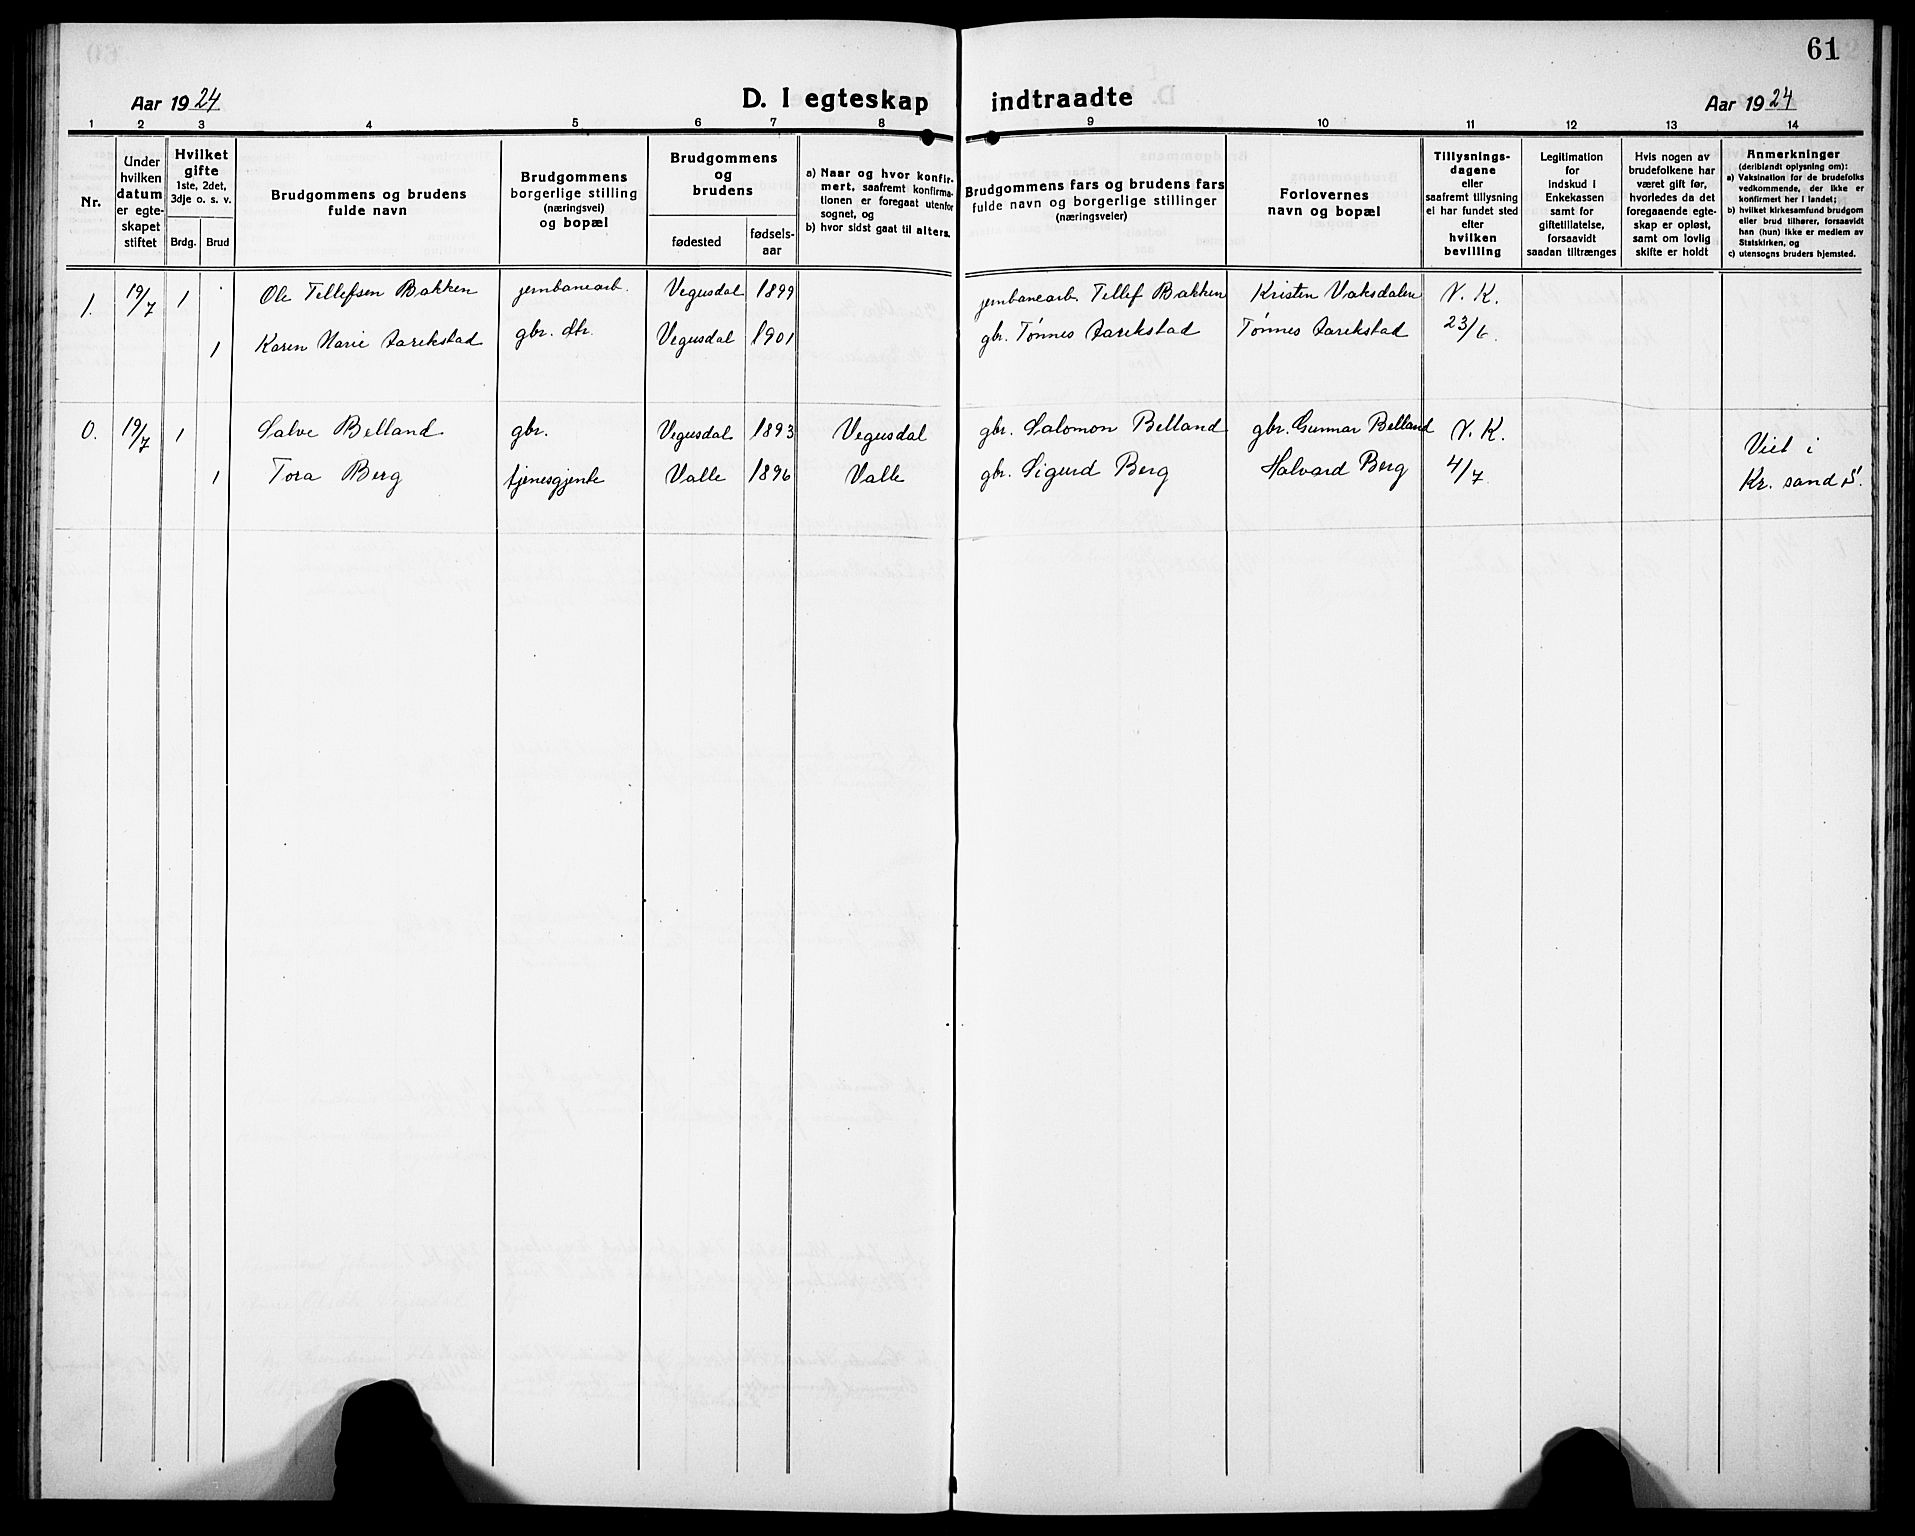 61
Aar 1924 D. I egteskap indtraadte Aar 1924
1 2 3 4 5 6 7 8 9 10 11 12 13 14
Nr.
Under
hvilken
datum
er egte-
skapet
stiftet
Hvilket
gifte
1ste, 2det,
3dje o. s. v.
Brdg. Brud
Brudgommens og brudens
fulde navn
Brudgommens
borgerlige stilling
(næringsvei)
og bopæl
Brudgommens
og
brudens
fødested
fødsels-
aar
a) Naar og hvor konfir-
mert, saafremt konfirma-
tionen er foregaat utenfor
sognet, og
b) hvor sidst gaat til alters.
Brudgommens fars og brudens fars
fulde navn og borgerlige stillinger
(næringsveier)
Forlovernes
navn og bopæl
Tillysnings-
dagene
eller
saafremt tillysning
ei har fundet sted
efter
hvilken
bevilling
Legitimation
for
indskud i
Enkekassen
samt for
giftetillatelse,
forsaavidt
saadan tiltrænges
Hvis nogen av
brudefolkene har
været gift før,
hvorledes da det
foregaaende egte-
skap er opløst,
samt om lovlig
skifte er holdt
Anmerkninger
(deriblendt oplysning om):
a) Vaksination for de brudefolks
vedkommende, der ikke er
konfirmert her i landet;
b) hvilket kirkesamfund brudgom
eller brud tilhører, forsaavidt
han (hun) ikke er medlem av
Statskirken, og
c) utensogns bruders hjemsted.
1. 19/7 1 Ole Tellefsen Bakken jernbanearb. Vegusdal 1899 jernbanearb. Tellef Bakken Kristen Vaksdalen V. K.
1 Karen Marie Aarikstad gbr. dtr. Vegusdal 1901 gbr. Tønnes Aarikstad Tønnes Aarikstad 23/6.
0. 19/7 1 Salve Belland gbr. Vegusdal 1893 Vegusdal gbr. Salomon Belland gbr. Gunnar Belland V. K. Viet i
1 Tora Berg tjenesgjente Valle 1896 Valle gbr. Sigurd Berg Halvard Berg 4/7. Kr. sand S.